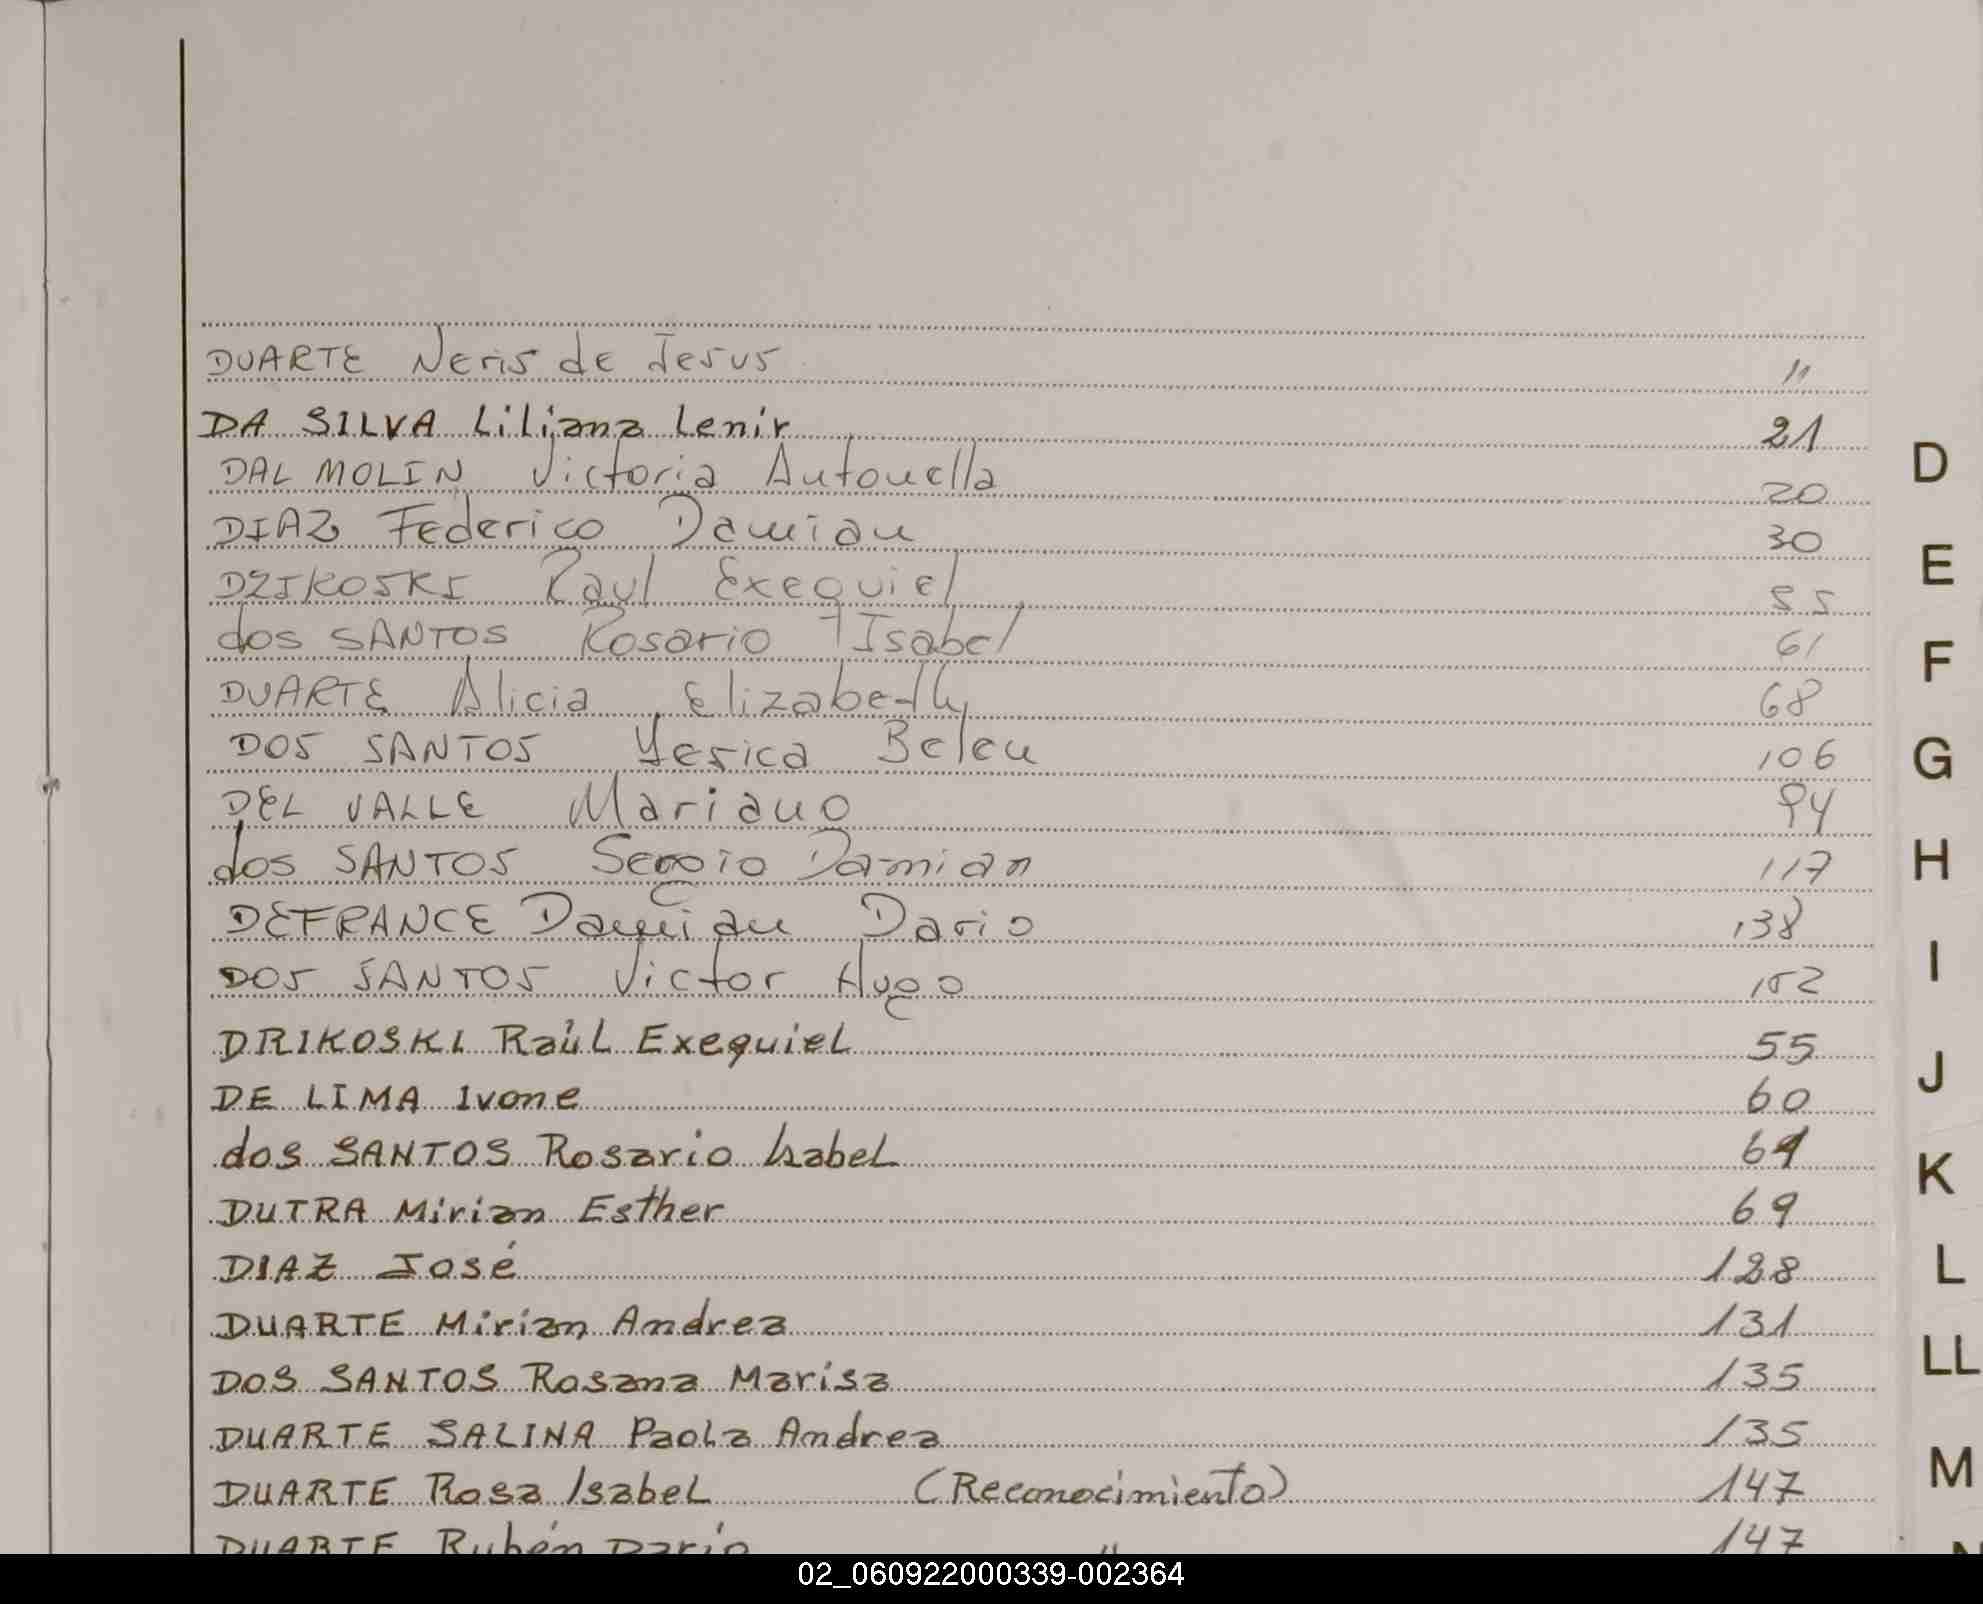 DUARTE Neris de Jesus 11
DA SILVA Liliana Lenir 21
DAL MOLIN Victoria Antonella 20
DIAZ Federico Damian 30
DZIKOSKI Raul Exequiel 55
dos SANTOS Rosario Isabel 61
DUARTE Alicia Elizabeth 68
DOS SANTOS Yesica Belen 106
DEL VALLE Mariano 94
dos SANTOS Sergio Damian 117
DEFRANCE Damian Dario 138
DOS SANTOS Victor Hugo 152
DRIKOSKI Raúl Exequiel 55
DE LIMA Ivone 60
dos SANTOS Rosario Isabel 61
DUTRA Mirian Esther 69
DIAZ José 128
DUARTE Mirian Andrea 131
DOS SANTOS Rosana Marisa 135
DUARTE SALINA Paola Andrea 135
DUARTE Rosa Isabel (Reconocimiento) 147
DUARTE Rubén Darío " 147
D
E
F
G
H
I
J
K
L
LL
M
N
02_060922000339-002364